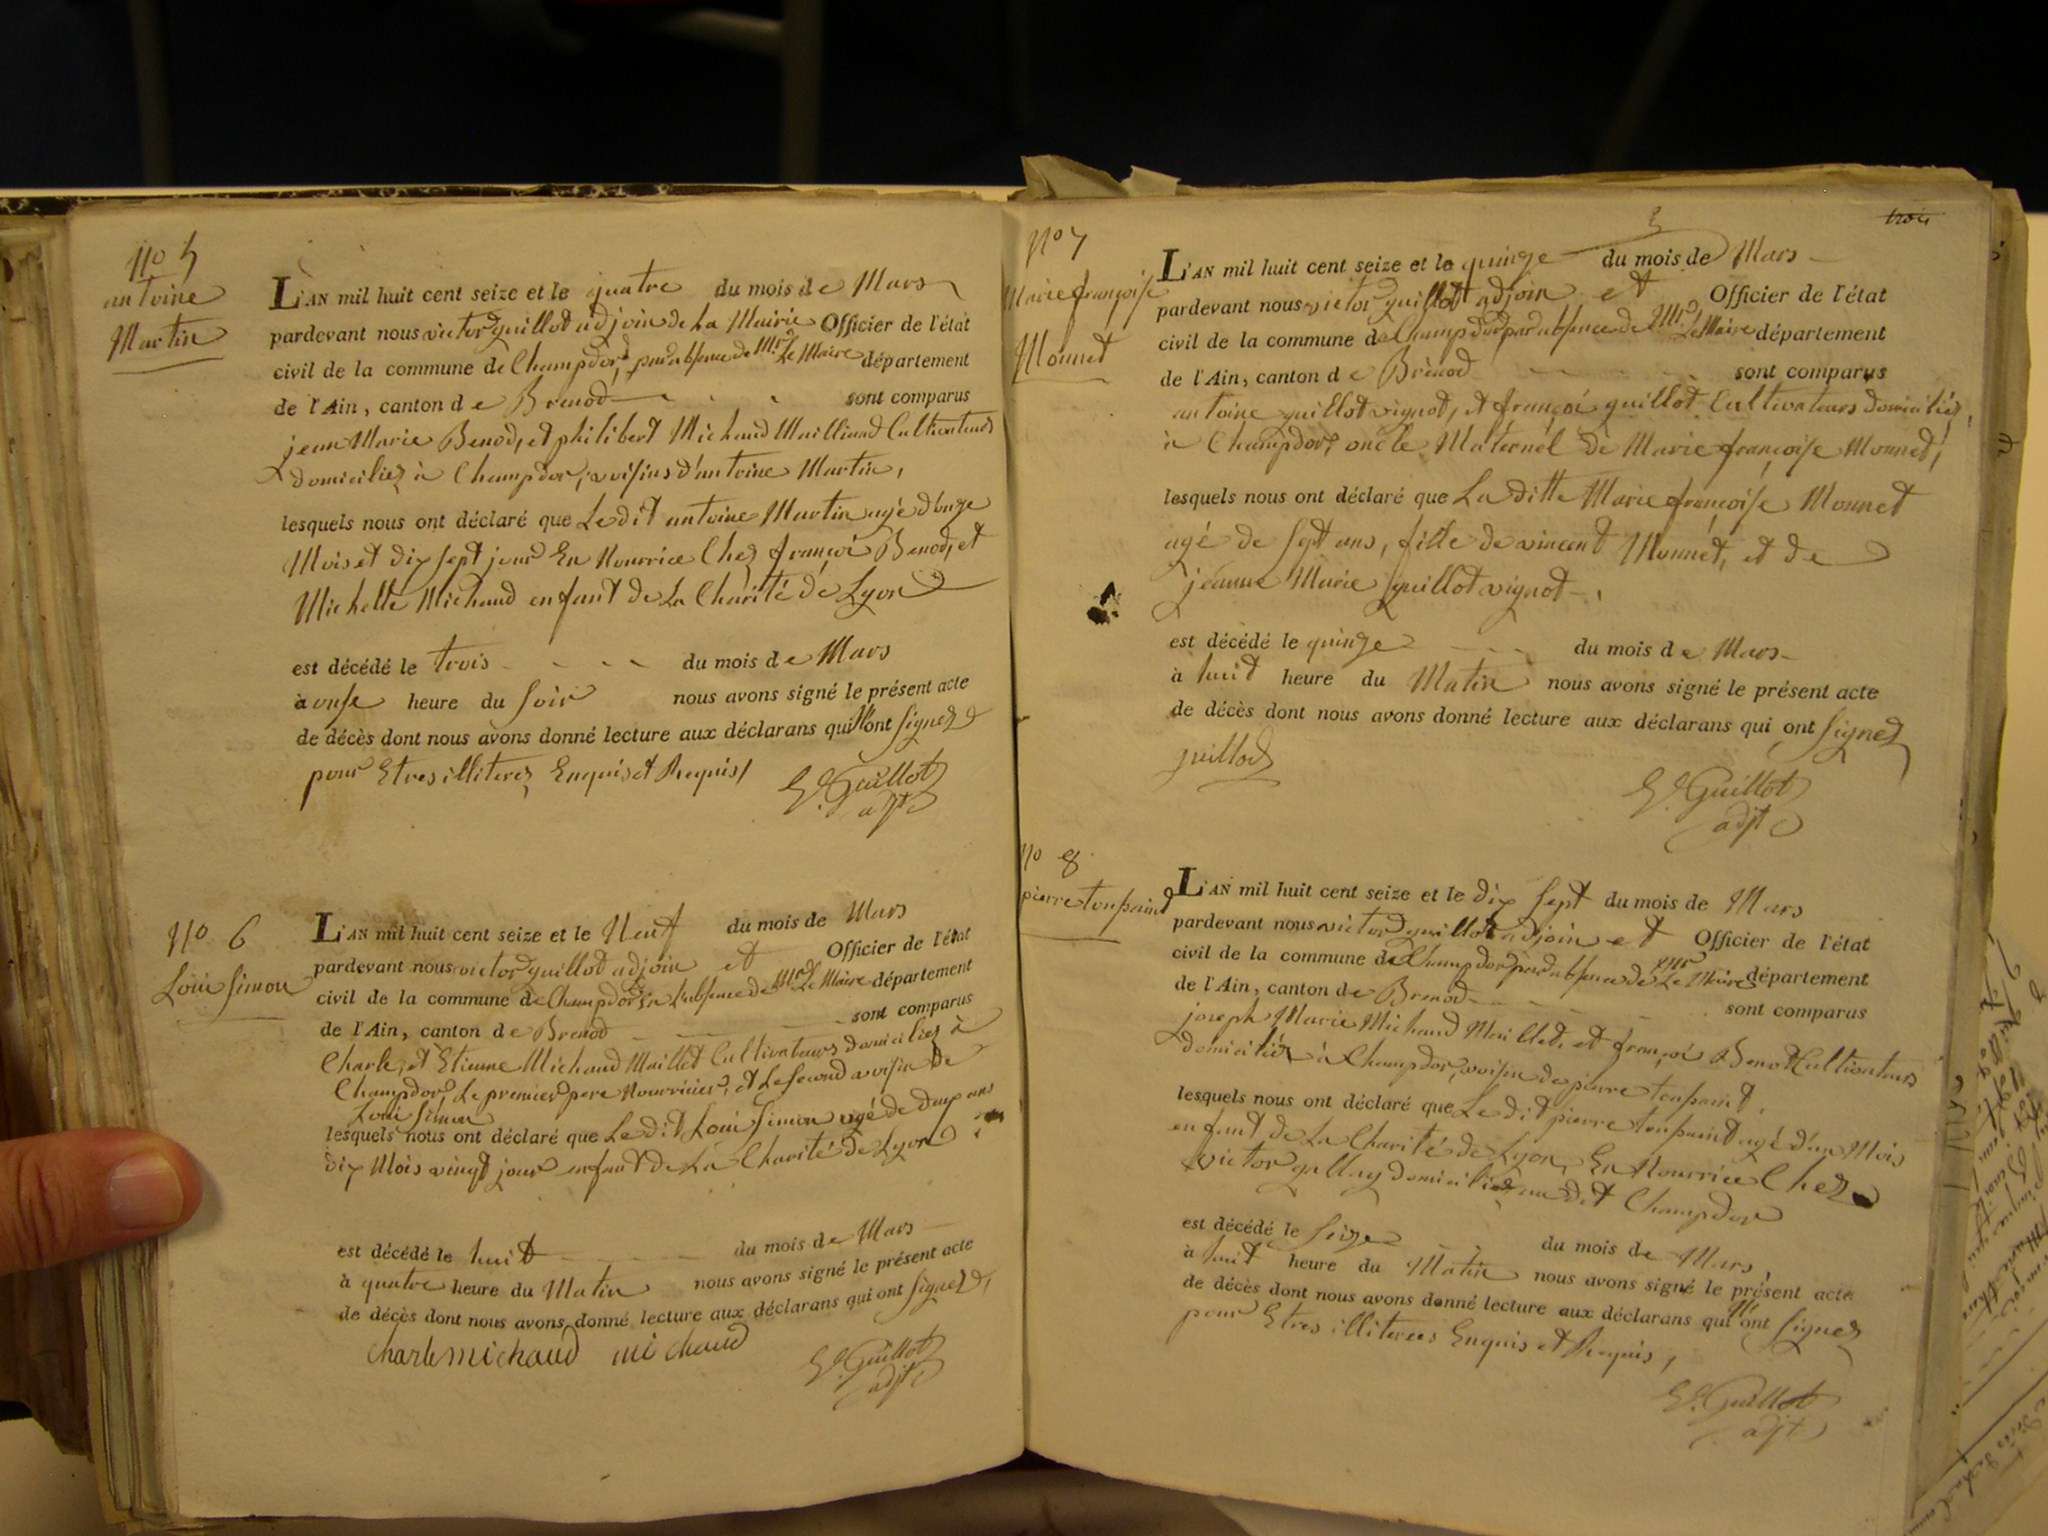 No 5
antoine
Martin
L'AN mil huit cent seize et le quatre du mois de Mars
pardevant nous victor guillot adjoin de la Mairie Officier de l'état
civil de la commune de Champdor, par absence de Mr Le Maire département
de l'Ain, canton de Brenod sont comparus
jean Marie Benod, et philibert Michaud Mailliand Cultivateurs
domiciliez à Champdor, voisins d'antoine Martin,
lesquels nous ont déclaré que Le dit antoine Martin agé d'onze
Mois et dix sept jour En Nourrice Chez françoi Benod, et
Michelle Michaud enfant de La Charité de Lyon
est décédé le trois du mois de Mars
à onse heure du Soir nous avons signé le présent acte
de décès dont nous avons donné lecture aux déclarans qui n'ont Signez
pour Etres illiterez Enquis et Requis /
Vr Guillot
adjt
No 6
Loui Simon
L'AN mil huit cent seize et le Neuf du mois de Mars
pardevant nous victor guillot adjoin et Officier de l'état
civil de la commune de Champdor En L'absence de Mr Le Maire département
de l'Ain, canton de Brenod sont comparus
Charle, et Etienne Michaud Maillet Cultivateurs domiciliez à
Champdor, Le premier pere Nourricier, et Le Second avoisin de
Loui Simon
lesquels nous ont déclaré que Le dit Loui Simon agé de deux ans
dix Mois vingt jour enfant de La Charité de Lyon
est décédé le huit du mois de Mars
à quatre heure du Matin nous avons signé le présent acte
de décès dont nous avons donné lecture aux déclarans qui ont Signez
charle michaud michaud
Vr Guillot
adjt
3
trois
No 7
Marie françoise
Monnet
L'AN mil huit cent seize et le quinze du mois de Mars
pardevant nous victor guillot adjoin et Officier de l'état
civil de la commune de Champdor par absence de Mr Le Maire département
de l'Ain, canton de Brenod sont comparus
antoine guillot vignot, et françoi guillot Cultivateurs domiciliéz
à Champdor, oncle Maternel de Marie françoise Monnet,
lesquels nous ont déclaré que La ditte Marie françoise Monnet
agé de Sept ans, fille de vincent Monnet, et de
jeanne Marie guillot vignot
est décédé le quinze du mois de Mars
à huit heure du Matin nous avons signé le présent acte
de décès dont nous avons donné lecture aux déclarans qui ont Signez
guillod
Vr Guillot
adjt
No 8
pierre toupaint
L'AN mil huit cent seize et le dix Sept du mois de Mars
pardevant nous victor guillot adjoin et Officier de l'état
civil de la commune de Champdor par absence de Mr Le Maire département
de l'Ain, canton de Brenod sont comparus
joseph Marie Michaud Maillet, et françoi Benod Cultivateurs
domiciliéz à Champdor, voisin de pierre toupaint,
lesquels nous ont déclaré que Le dit pierre toupaint agé d'un Mois
enfant de La Charité de Lyon, En Nourrice Chez
victor gallay domicilié au dit Champdor
est décédé le Seize du mois de Mars,
à huit heure du Matin nous avons signé le présent acte
de décès dont nous avons donné lecture aux déclarans qui n'ont Signez
pour Etres illiterees Enquis et Requis,
Vr Guillot
adjt